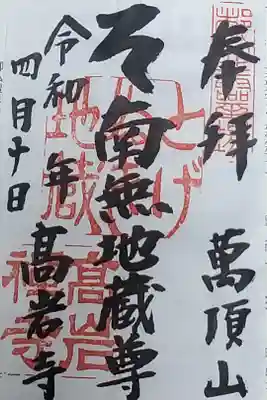 奉拝 萬頂山
南無地蔵尊
令和 年 高岩寺
四月十日
とげ
ぬき
地蔵
高岩
禅寺